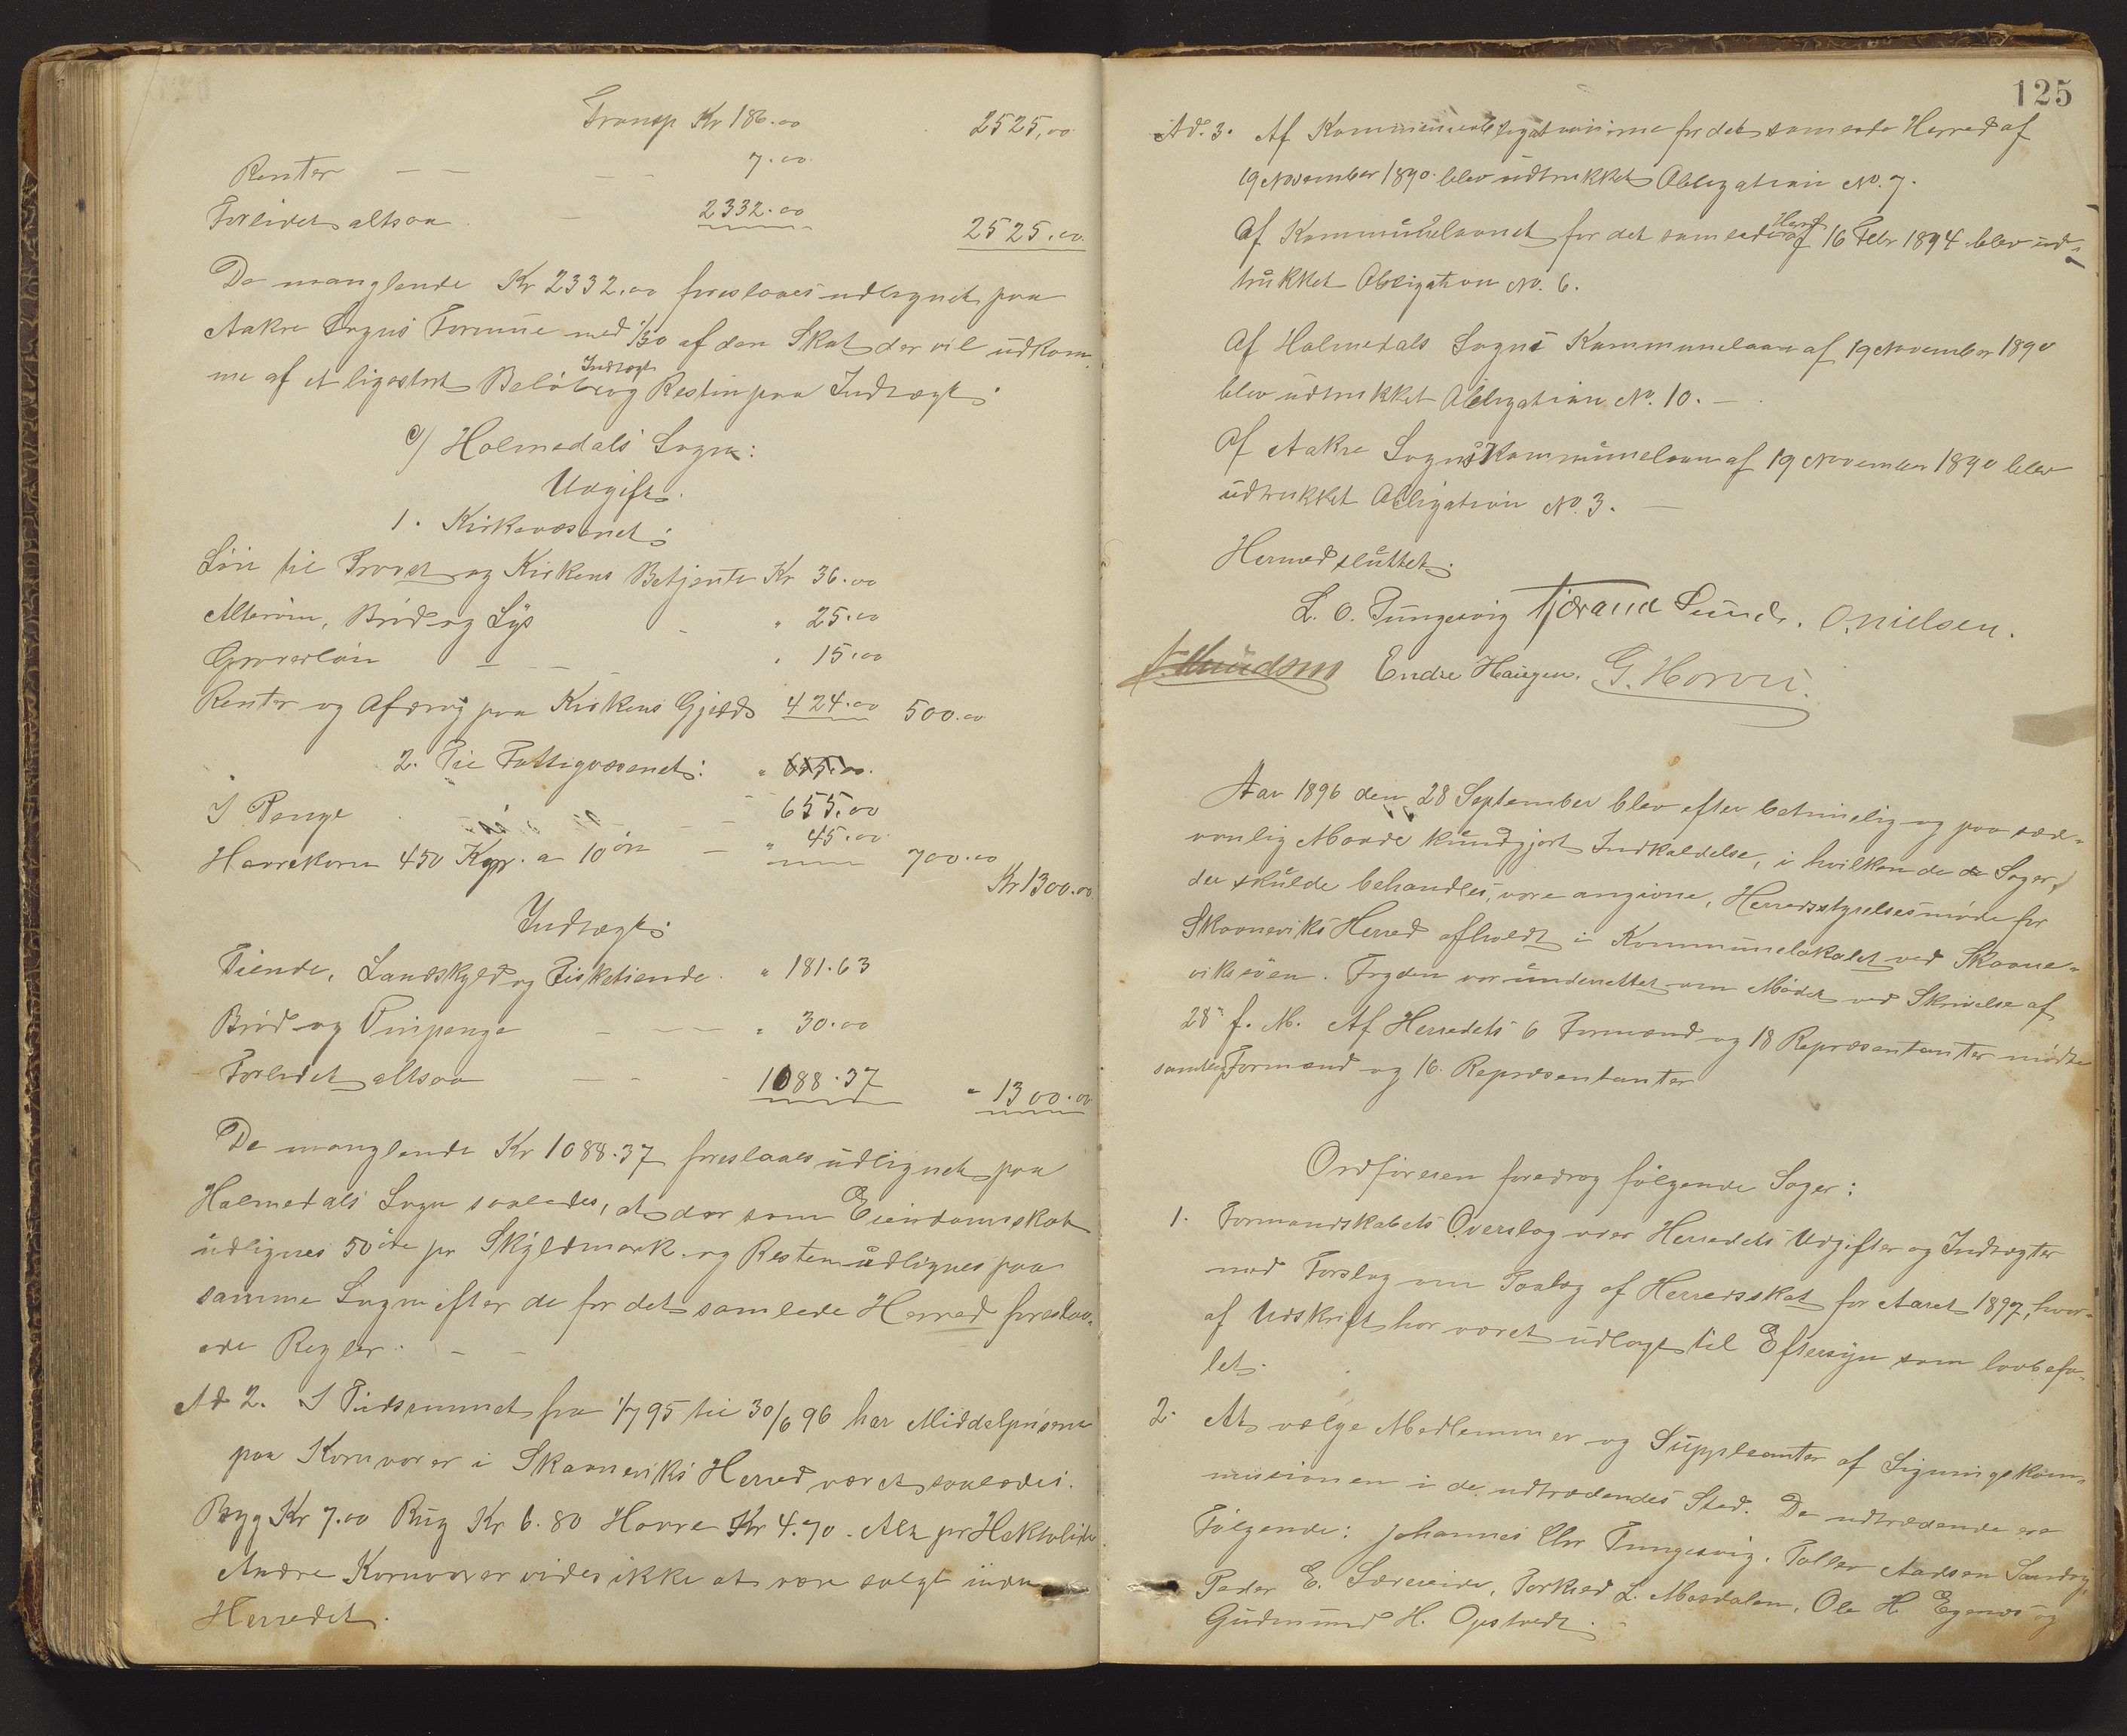 Transp Kr 186.00 2525,00
Renter — — — — 7.00
Forlidet altsaa — 2332.00 2525.00
De manglende Kr 2332.00 foreslaaes udlignet paa
Aakre Sogns Formue med 1/30 af den Skat der vil udkom-
me af et ligestort Beløb Indtægt og Resten paa Indtægt.
c) Holmedals Sogn:
Udgift.
1. Kirkevæsenet:
Løn til Provst og Kirkens Betjente Kr 36.00
Altervin, Brød og Lys - " 25.00
Graverløn — — — " 15.00
Renter og Afdrag paa Kirkens Gjæld 424.00 500.00
2. Til Fattigvæsenet: "
I Penge — — 655,00
Havrekorn 450 Kgr. a 10 øre — " 45.00 700.00
Kr 1300.00
Indtægt:
Tiende, Landskyld og Fisketiende. " 181.63
Brød og Vinpenge — — — " 30.00
Forlidet altsaa — - - 1088.37 " 1300.00
De manglende Kr 1088.37 foreslaaes udlignet paa
Holmedals Sogn saaledes, at der som Eiendomsskat
udlignes 50 øre pr Skyldmark og Resten udlignes paa
samme Sogn efter de for det samlede Herred foreslaa-
ede Regler. — —
Ad 2. I Tidsrummet fra 1/7 95 til 30/6 96 har Middelprisene
paa Kornvarer i Skaaneviks Herred været saaledes.
Byg Kr 7.00 Rug Kr 6.80 Havre Kr 4.70. Alt pr Hektoliter
Andre Kornvarer vides ikke at være solgt inden
Herredet.
125
Ad. 3. Af Kommuneobligationerne for det samlede Herred af
19 November 1890 blev udtrukket Obligation No. 7.
Af Kommunelaanet for det samlede Herred af 16 Febr 1894 blev ud-
trukket Obligation No. 6.
Af Holmedals Sogns Kommunelaan af 19 November 1890
blev udtrukket Obligation No. 10. —
Af Aakre Sogns Kommunelaan af 19 November 1890 blev
udtrukket Obligation No. 3. —
Hermed sluttet.
L. O. Tungesvig Tjærand Sunde. O. Nielsen.
Knudsen Endre Haugen. G. Horvei.
Aar 1896 den 28 September blev efter betimelig og paa sæd-
vanlig Maade kundgjort Indkaldelse, i hvilken de Sager,
der skulde behandles, vare angivne, Herredsstyrelsesmøde for
Skaaneviks Herred afholdt i Kommunelokalet ved Skaane-
viksøen. Fogden var underrettet om Mødet ved Skrivelse af
28 f. M. Af Herredets 6 Formænd og 18 Repræsentanter mødte
samtlige Formænd og 16 Repræsentanter
Ordføreren foredrog følgende Sager:
1. Formandskabets Overslag over Herredets Udgifter og Indtægter
med Forslag om Paalæg af Herredsskat for Aaret 1897, hvor-
af Udskrift har været udlagt til Eftersyn som lovbefa-
let.
2. At vælge Medlemmer og Suppleanter af Ligningskom-
missionen i de udtrædendes Sted. De udtrædende ere
Følgende: Johannes Chr Tungesvig, Tollev Aadsen Sandvig,
Peder E. Særeide, Torkild L. Mosdalen, Ole H. Egenæs og
Gudmund H. Opstvedt. -